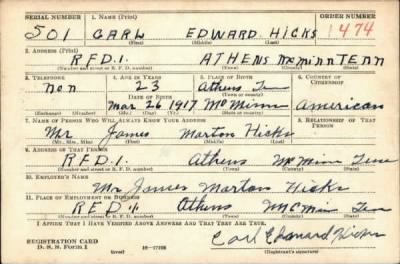 SERIAL NUMBER 1. NAME (Print) ORDER NUMBER
501 CARL EDWARD HICKS 1474
(First) (Middle) (Last)
2. ADDRESS (Print)
RFD.1. ATHENS McMinn TENN
(Number and street or R. F. D. number) (Town) (County) (State)
3. TELEPHONE 4. AGE IN YEARS 5. PLACE OF BIRTH 6. COUNTRY OF CITIZENSHIP
non 23 Athens
DATE OF BIRTH (Town or county)
Mar 26 1917 McMinn American
7. NAME OF PERSON WHO WILL ALWAYS KNOW YOUR ADDRESS 8. RELATIONSHIP OF THAT PERSON
Mr James Marton Hicks
(Mr., Mrs., Miss) (First) (Middle) (Last)
9. ADDRESS OF THAT PERSON
RFD.1. Athens McMinn
(Number and street or R. F. D. number) (Town) (County) (State)
10. EMPLOYER'S NAME
Mr James Marton Hicks
11. PLACE OF EMPLOYMENT OR BUSINESS
R.F.D.1. Athens McMinn
(Number and street or R. F. D. number) (Town) (County) (State)
I AFFIRM THAT I HAVE VERIFIED ABOVE ANSWERS AND THAT THEY ARE TRUE.
REGISTRATION CARD
D. S. S. Form 1 (over) Carl Edward Hicks
(Registrant's signature)